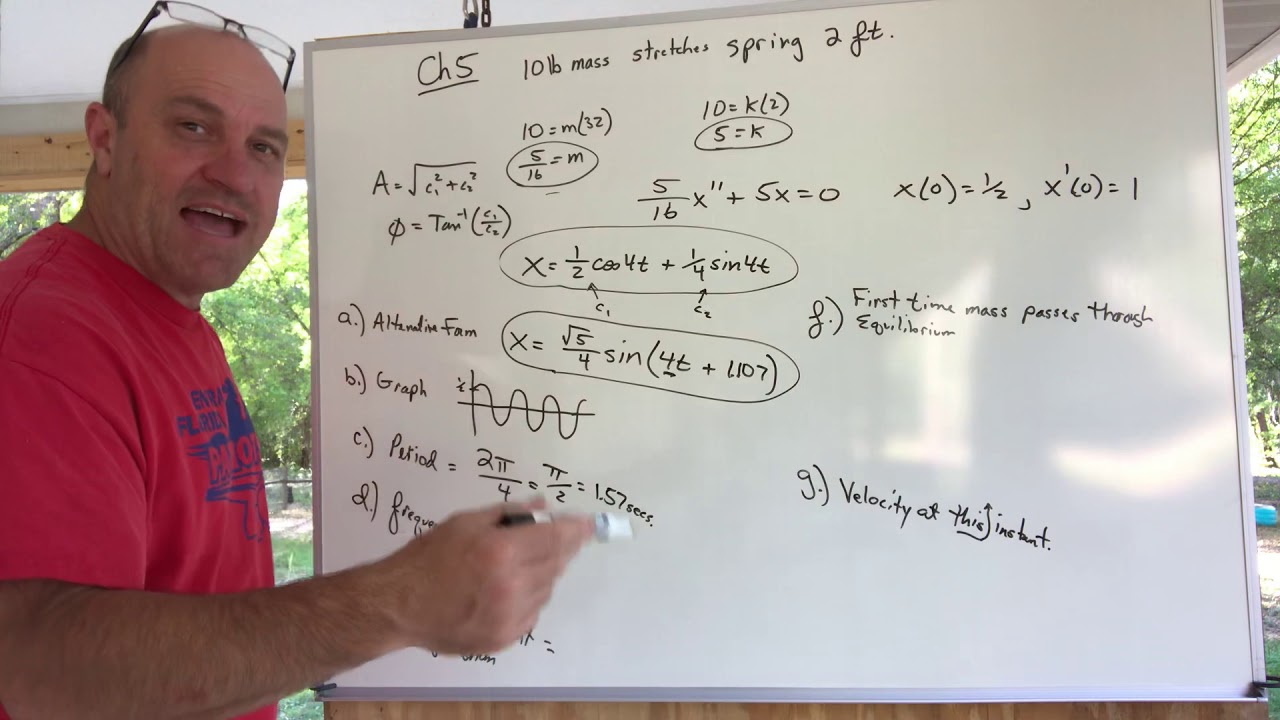 Ch5 10lb mass stretches spring 2 ft.
10 = m(32)
5/16 = m
10 = k(2)
5 = k
A = √(c₁² + c₂²)
φ = Tan⁻¹(c₁/c₂)
5/16 x'' + 5x = 0 x(0) = 1/2, x'(0) = 1
x = 1/2 cos4t + 1/4 sin4t
c₁ c₂
a.) Alternative Form
x = √5/4 sin(4t + 1.107)
b.) Graph
1/2
c.) Period = 2π/4 = π/2 = 1.57 secs.
d.)
=
f.) First time mass passes through
Equilibrium
g.) Velocity at this instant.